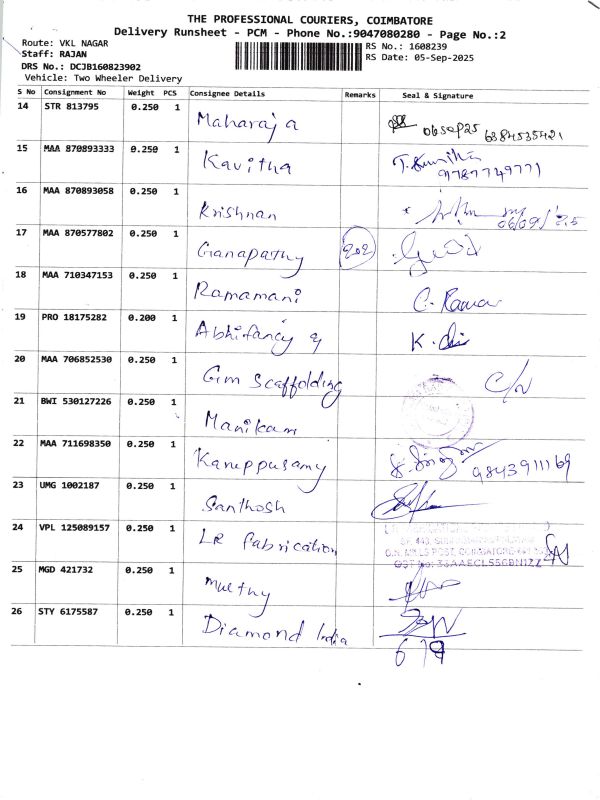 THE PROFESSIONAL COURIERS, COIMBATORE
Delivery Runsheet - PCM - Phone No.:9047080280 - Page No.:2
Route: VKL NAGAR RS No.: 1608239
Staff: RAJAN RS Date: 05-Sep-2025
DRS No.: DCJB160823902
Vehicle: Two Wheeler Delivery
S No Consignment No Weight PCS Consignee Details Remarks Seal & Signature
14 STR 813795 0.250 1 Maharaja 06sep25 6384535421
15 MAA 870893333 0.250 1 Kavitha 9787749771
16 MAA 870893058 0.250 1 Krishnan 06/09/25
17 MAA 870577802 0.250 1 Ganapathy 202
18 MAA 710347153 0.250 1 Ramamani C. Rama
19 PRO 18175282 0.200 1 Abhifancy K.
20 MAA 706852530 0.250 1 Gim Scaffolding
21 BWI 530127226 0.250 1 Manikam
22 MAA 711698350 0.250 1 Karuppusamy 9843911169
23 UMG 1002187 0.250 1 Santhosh
24 VPL 125089157 0.250 1 LR Fabrication
25 MGD 421732 0.250 1 Muethy
26 STY 6175587 0.250 1 Diamond India
6/9